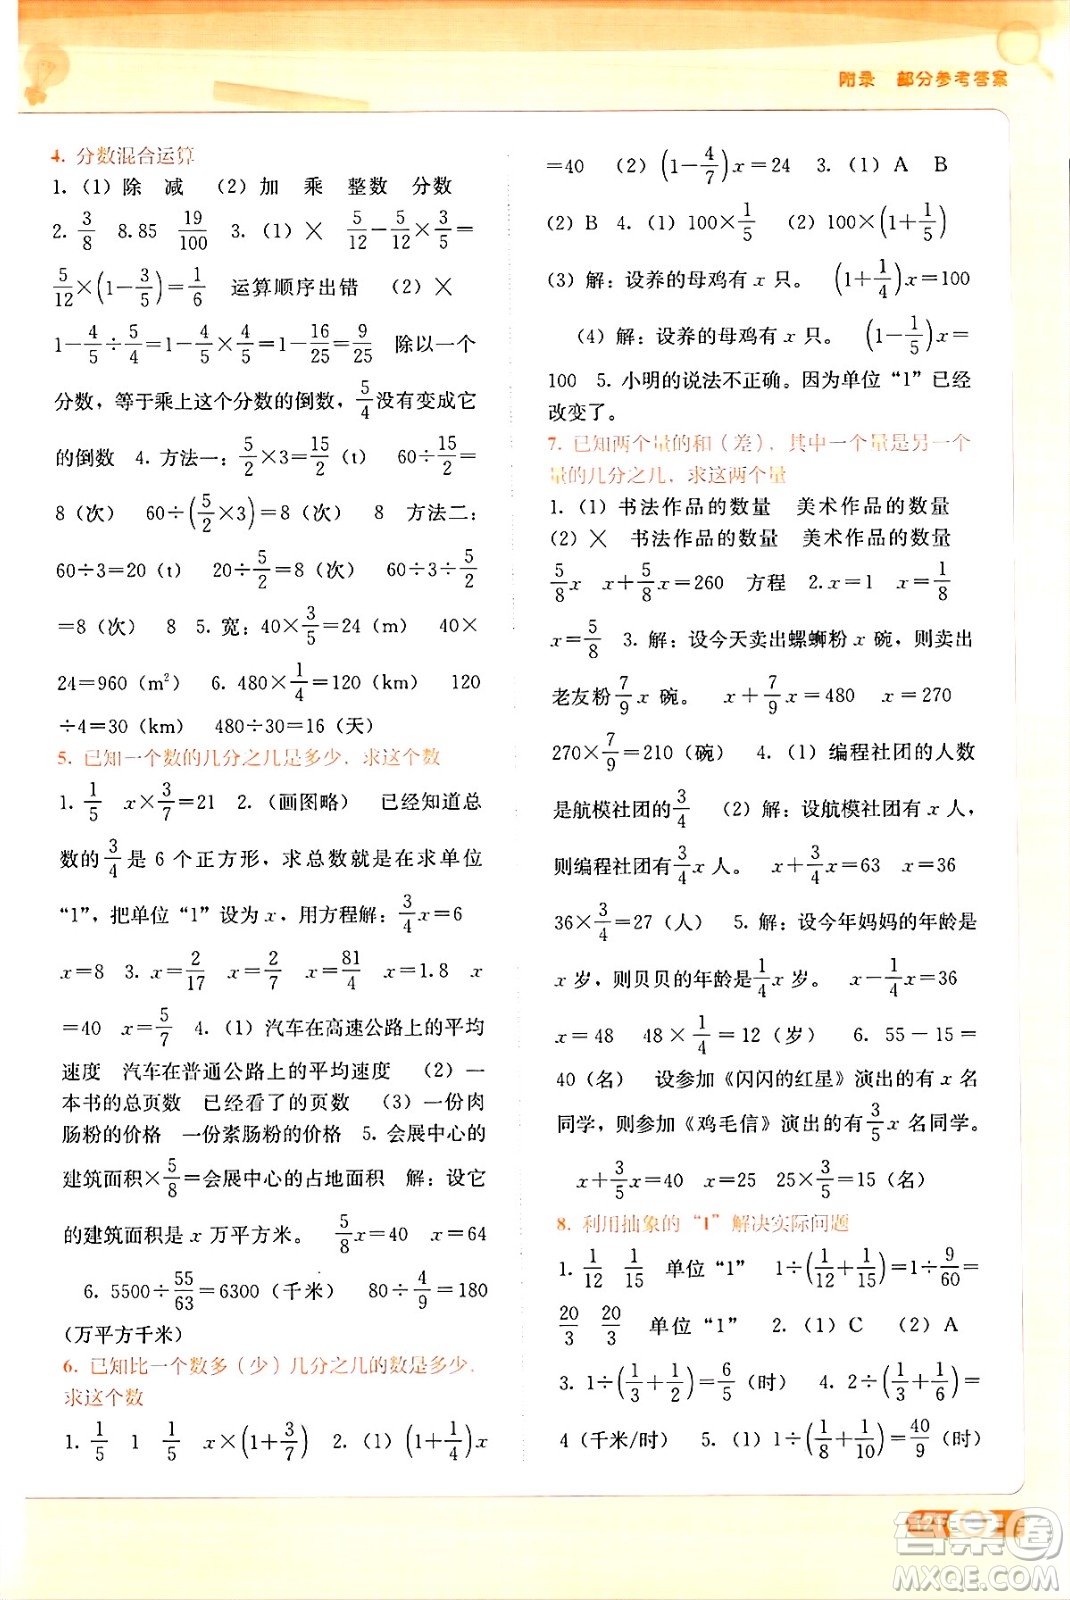 附录 部分参考答案
4. 分数混合运算
1. (1) 除 减 (2) 加 乘 整数 分数
2. 3/8 8.85 19/100 3. (1) × 5/12－5/12×3/5＝
5/12×(1－3/5)＝1/6 运算顺序出错 (2) ×
1－4/5÷5/4＝1－4/5×4/5＝1－16/25＝9/25 除以一个
分数，等于乘上这个分数的倒数，5/4没有变成它
的倒数 4. 方法一：5/2×3＝15/2（t） 60÷15/2＝
8（次） 60÷(5/2×3)＝8（次） 8 方法二：
60÷3＝20（t） 20÷5/2＝8（次） 60÷3÷5/2
＝8（次） 8 5. 宽：40×3/5＝24（m） 40×
24＝960（m²） 6. 480×1/4＝120（km） 120
÷4＝30（km） 480÷30＝16（天）
5. 已知一个数的几分之几是多少，求这个数
1. 1/5 x×3/7＝21 2.（画图略） 已经知道总
数的3/4是 6 个正方形，求总数就是在求单位
“1”，把单位“1”设为 x，用方程解：3/4x＝6
x＝8 3. x＝2/17 x＝2/7 x＝81/4 x＝1.8 x
＝40 x＝5/7 4.（1）汽车在高速公路上的平均
速度 汽车在普通公路上的平均速度 （2）一
本书的总页数 已经看了的页数 （3）一份肉
肠粉的价格 一份素肠粉的价格 5. 会展中心的
建筑面积×5/8＝会展中心的占地面积 解：设它
的建筑面积是 x 万平方米。 5/8x＝40 x＝64
6. 5500÷55/63＝6300（千米） 80÷4/9＝180
（万平方千米）
6. 已知比一个数多（少）几分之几的数是多少，
求这个数
1. 1/5 1 1/5 x×(1＋3/7) 2.（1）(1＋1/4)x
＝40 （2）(1－4/7)x＝24 3.（1）A B
（2）B 4.（1）100×1/5 （2）100×(1＋1/5)
（3）解：设养的母鸡有 x 只。 (1＋1/4)x＝100
（4）解：设养的母鸡有 x 只。 (1－1/5)x＝
100 5. 小明的说法不正确。因为单位“1”已经
改变了。
7. 已知两个量的和（差），其中一个量是另一个
量的几分之几，求这两个量
1.（1）书法作品的数量 美术作品的数量
（2）× 书法作品的数量 美术作品的数量
5/8x x＋5/8x＝260 方程 2. x＝1 x＝1/8
x＝5/8 3. 解：设今天卖出螺蛳粉 x 碗，则卖出
老友粉7/9x 碗。 x＋7/9x＝480 x＝270
270×7/9＝210（碗） 4.（1）编程社团的人数
是航模社团的3/4 （2）解：设航模社团有 x 人，
则编程社团有3/4x 人。 x＋3/4x＝63 x＝36
36×3/4＝27（人） 5. 解：设今年妈妈的年龄是
x 岁，则贝贝的年龄是1/4x 岁。 x－1/4x＝36
x＝48 48×1/4＝12（岁） 6. 55－15＝
40（名） 设参加《闪闪的红星》演出的有 x 名
同学，参加《鸡毛信》演出的有3/5x 名同学。
x＋3/5x＝40 x＝25 25×3/5＝15（名）
8. 利用抽象的“1”解决实际问题
1. 1/12 1/15 单位“1” 1÷(1/12＋1/15)＝1÷9/60＝
20/3 20/3 单位“1” 2.（1）C （2）A
3. 1÷(1/3＋1/2)＝6/5（时） 4. 2÷(1/3＋1/6)＝
4（千米/时） 5.（1）1÷(1/8＋1/10)＝40/9（时）
答案圈
MXQE.COM